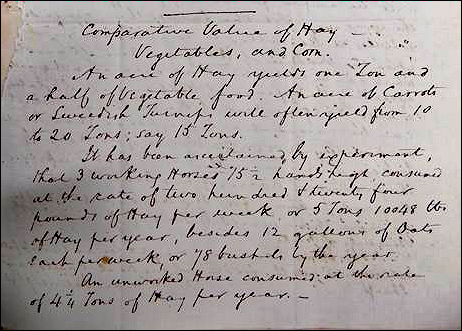 Comparative Value of Hay
Vegetables, and Corn.
An acre of Hay yields one Ton and
a half of Vegetable food An acre of Carrots
or Sweedish Turnips will often yield from 10
to 20 Tons; say 15 Tons.
It has been ascertained by experiment,
that 3 working Horses 15 ½ hands high consumed
at the rate of two hundred & twenty four
pounds of Hay per week or 5 Tons 1004 lbs
of Hay per year, besides 12 gallons of Oats
each per week or 78 bushels by the year.
An unworked Horse consumed at the rate
of 4 ¼ Tons of Hay per year. –